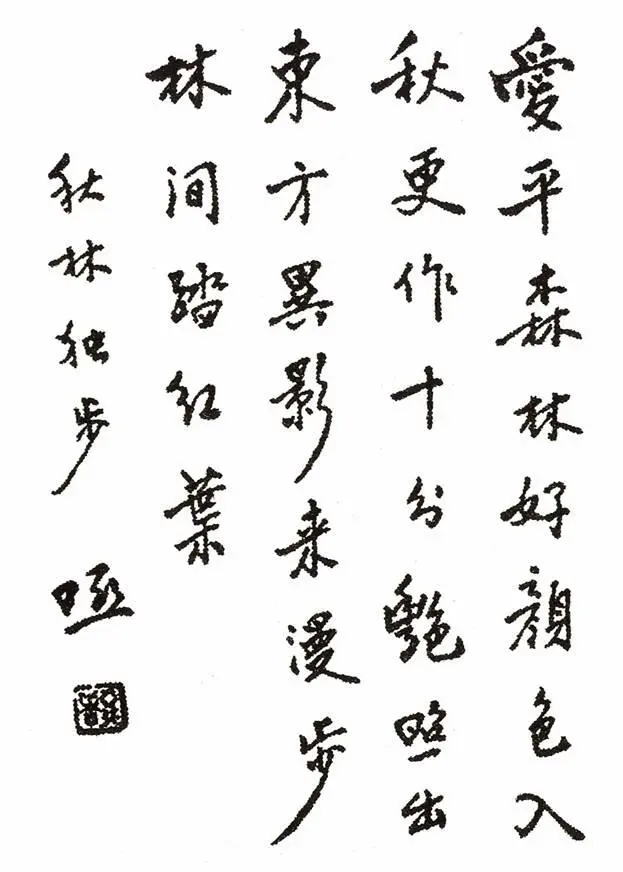 愛平森林好顔色入
秋更作十分艷照出
東方異影来漫步
林间踏红葉
秋林独步